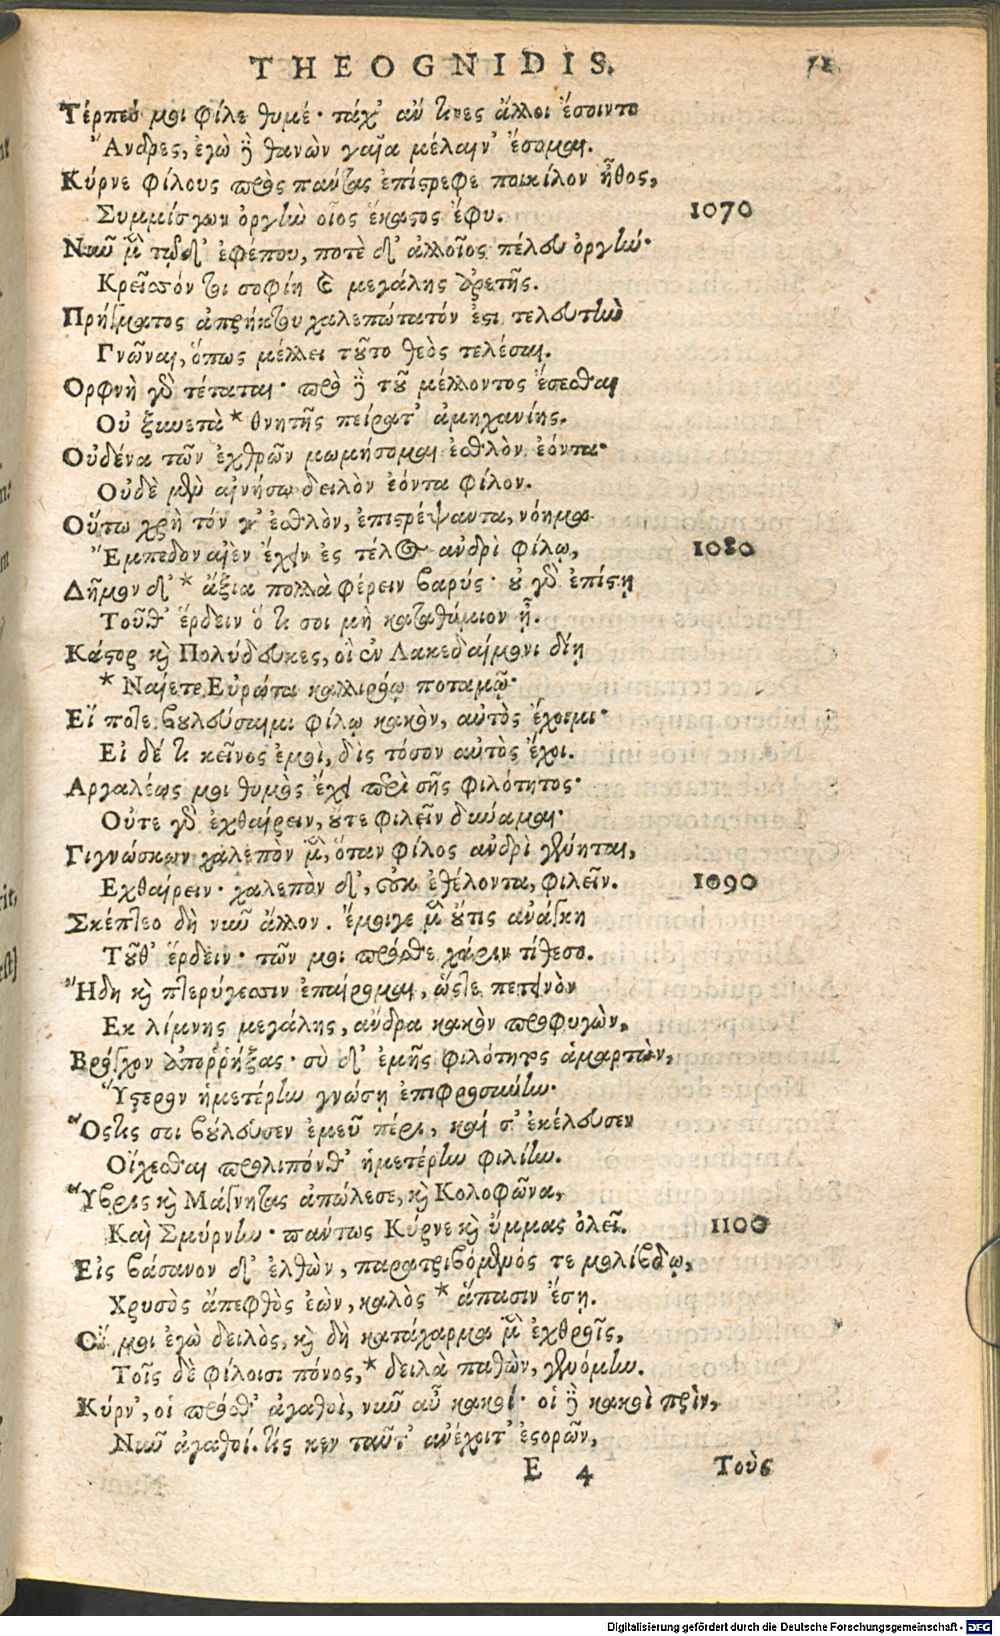 THEOGNIDIS. 71
Τέρπεό μοι φίλε θυμέ· τάχ' αὖ τινες ἄλλοι ἔσοιντο
Ἄνδρες, ἐγὼ δὲ θανὼν γαῖα μέλαιν' ἔσομαι.
Κύρνε φίλους πρὸς πάντας ἐπίστρεφε ποικίλον ἦθος,
Συμμίσγων ὀργὴν οἷος ἕκαστος ἔφυ. 1070
Νῦν μὲν τῷδ' ἐφέπου, ποτὲ δ' ἀλλοῖος πέλευ ὀργήν·
Κρεῖσσόν τοι σοφίη καὶ μεγάλης ἀρετῆς.
Πρήγματος ἀπρήκτου χαλεπώτατόν ἐστι τελευτὴν
Γνῶναι, ὅπως μέλλει τοῦτο θεὸς τελέσαι.
Ορφνὴ γὰρ τέταται· πρὸ δὲ τοῦ μέλλοντος ἔσεσθαι
Οὐ ξυνετὰ * θνητῆς πείρατ' ἀμηχανίης.
Οὐδένα τῶν ἐχθρῶν μωμήσομαι ἐσθλὸν ἐόντα·
Οὐδὲ μὲν αἰνήσω δειλὸν ἐόντα φίλον.
Οὕτω χρὴ τόν γ' ἐσθλὸν, ἐπιστρέψαντα, νόημα
Ἔμπεδον αἰὲν ἔχειν ἐς τέλος ἀνδρὶ φίλῳ, 1080
Δῆμον δ' * ἄξια πολλὰ φέρειν βαρύς· οὐ γὰρ ἐπίστῃ
Τοῦθ' ἕρδειν ὅ τι σοι μὴ καταθύμιον ᾖ.
Κάστορ καὶ Πολύδευκες, οἳ ἐν Λακεδαίμονι δίῃ
* Ναίετε Εὐρώτα καλλιρόῳ ποταμῷ·
Εἴ ποτε βουλεύσαιμι φίλῳ κακὸν, αὐτὸς ἔχοιμι·
Εἰ δέ τι κεῖνος ἐμοὶ, δὶς τόσον αὐτὸς ἔχοι.
Αργαλέως μοι θυμὸς ἔχει περὶ σῆς φιλότητος·
Οὔτε γὰρ ἐχθαίρειν, οὔτε φιλεῖν δύναμαι·
Γιγνώσκων χαλεπὸν μὲν, ὅταν φίλος ἀνδρὶ γένηται,
Εχθαίρειν· χαλεπὸν δ', οὐκ ἐθέλοντα, φιλεῖν. 1090
Σκέπτεο δὴ νῦν ἄλλον. ἔμοιγε μὲν οὔτις ἀνάγκη
Τοῦθ' ἕρδειν· τῶν μοι πρόσθε χάριν τίθεσο.
Ἤδη καὶ πτερύγεσσιν ἐπαίρομαι, ὥστε πετεινὸν
Εκ λίμνης μεγάλης, ἄνδρα κακὸν προφυγὼν,
Βρόγχον ἀπορρήξας· σὺ δ' ἐμῆς φιλότητος ἁμαρτὼν,
Ὕστερον ἡμετέρην γνώσῃ ἐπιφροσύνην·
Ὅστις σοι βούλευσεν ἐμεῦ πέρι, καί σ' ἐκέλευσεν
Οἴχεσθαι προλιπόνθ' ἡμετέρην φιλίην.
Ὕβρις καὶ Μάγνητας ἀπώλεσε, καὶ Κολοφῶνα,
Καὶ Σμύρνην· πάντως Κύρνε καὶ ὔμμας ὀλεῖ. 1100
Εἰς βάσανον δ' ἐλθὼν, παρατριβόμενός τε μολίβδῳ,
Χρυσὸς ἄπεφθος ἐὼν, καλὸς * ἅπασιν ἔσῃ.
Οἴ μοι ἐγὼ δειλὸς, καὶ δὴ κατάχαρμα μὲν ἐχθροῖς,
Τοῖς δὲ φίλοισι πόνος, * δειλὰ παθὼν, γενόμην.
Κύρν', οἱ πρόσθ' ἀγαθοὶ, νῦν αὖ κακοί· οἱ δὲ κακοὶ πρὶν,
Νῦν ἀγαθοί. τίς κεν ταῦτ' ἀνέχοιτ' ἐσορῶν,
E 4 Τοὺς
Digitalisierung gefördert durch die Deutsche Forschungsgemeinschaft - DFG